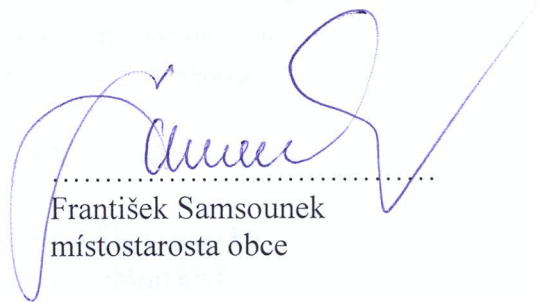 František Samsounek
místostarosta obce